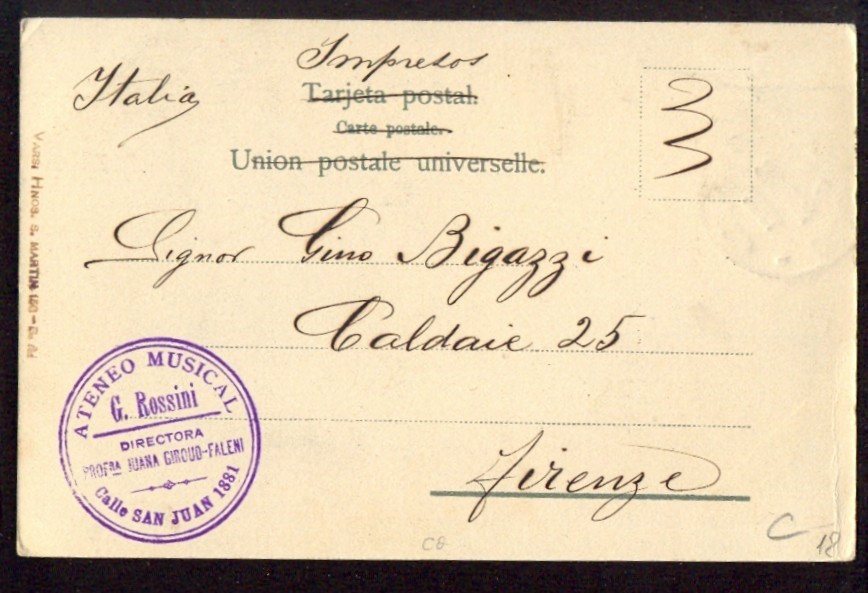 Impresos
Italia
Tarjeta postal.
Carte postale.
Union postale universelle.
Signor Gino Bigazzi
Caldaie 25
Firenze
ATENEO MUSICAL
G. Rossini
DIRECTORA
PROFRA JUANA GIROUD-FALENI
Calle SAN JUAN 1881
VARSI HNOS. S. MARTIN
C
18